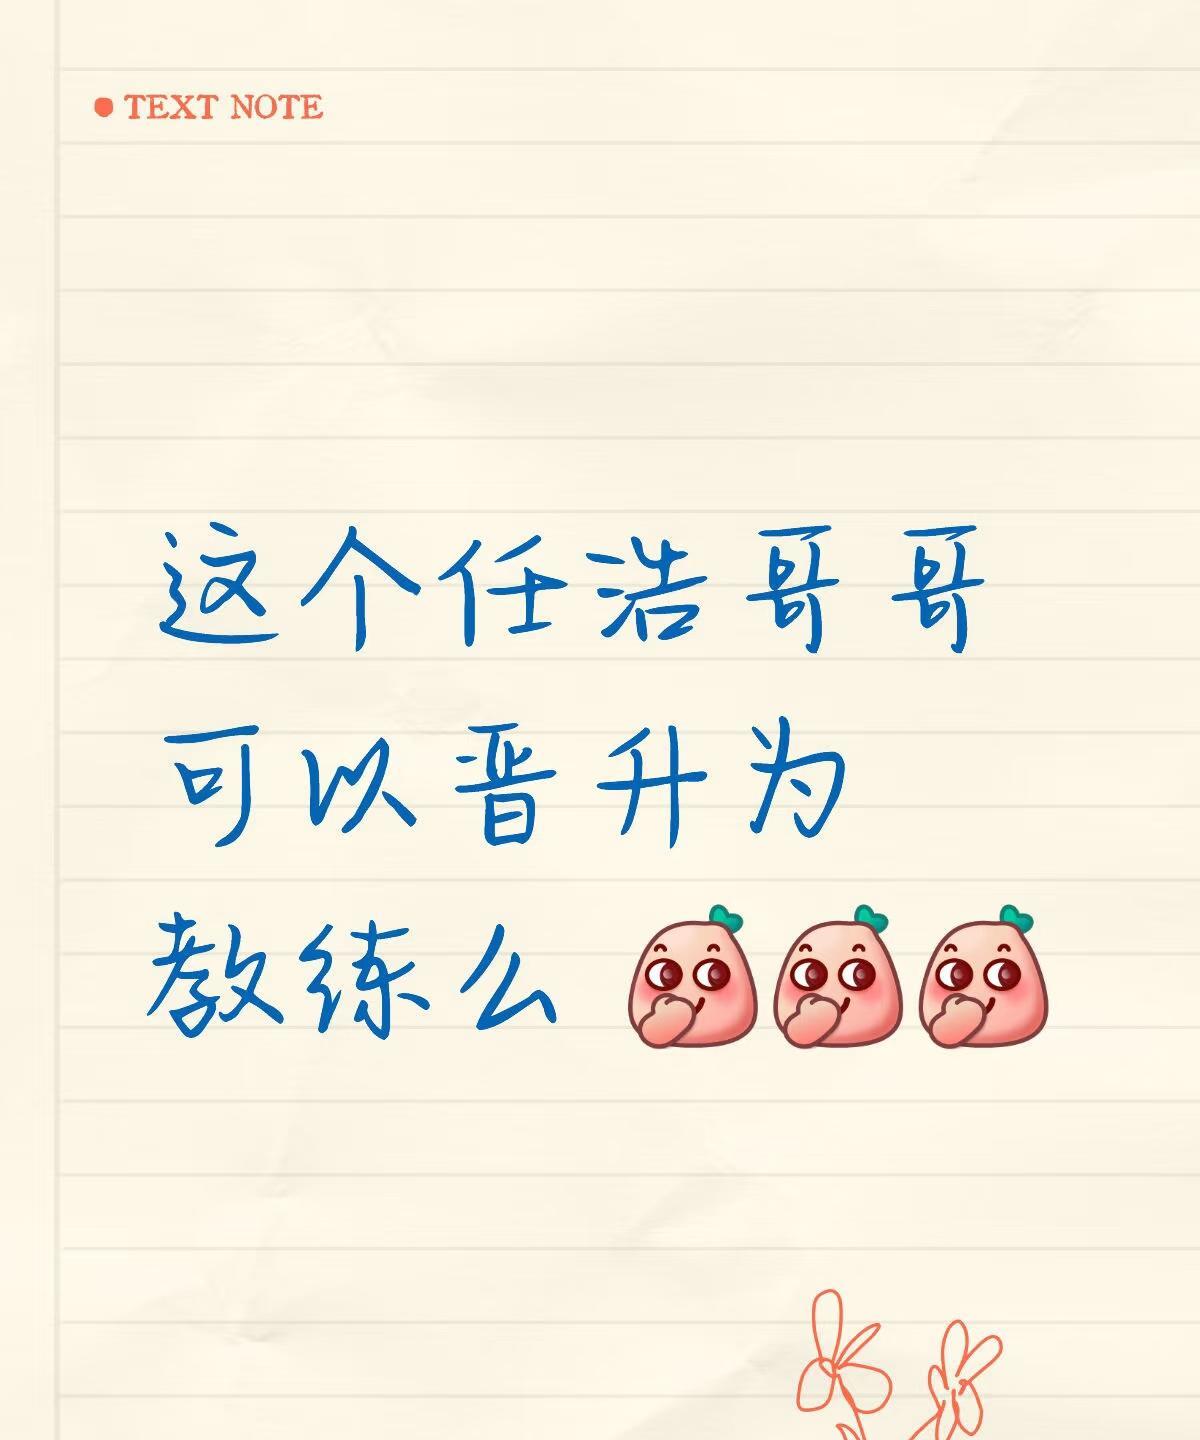 TEXT NOTE
这个任浩哥哥
可以晋升为
教练么